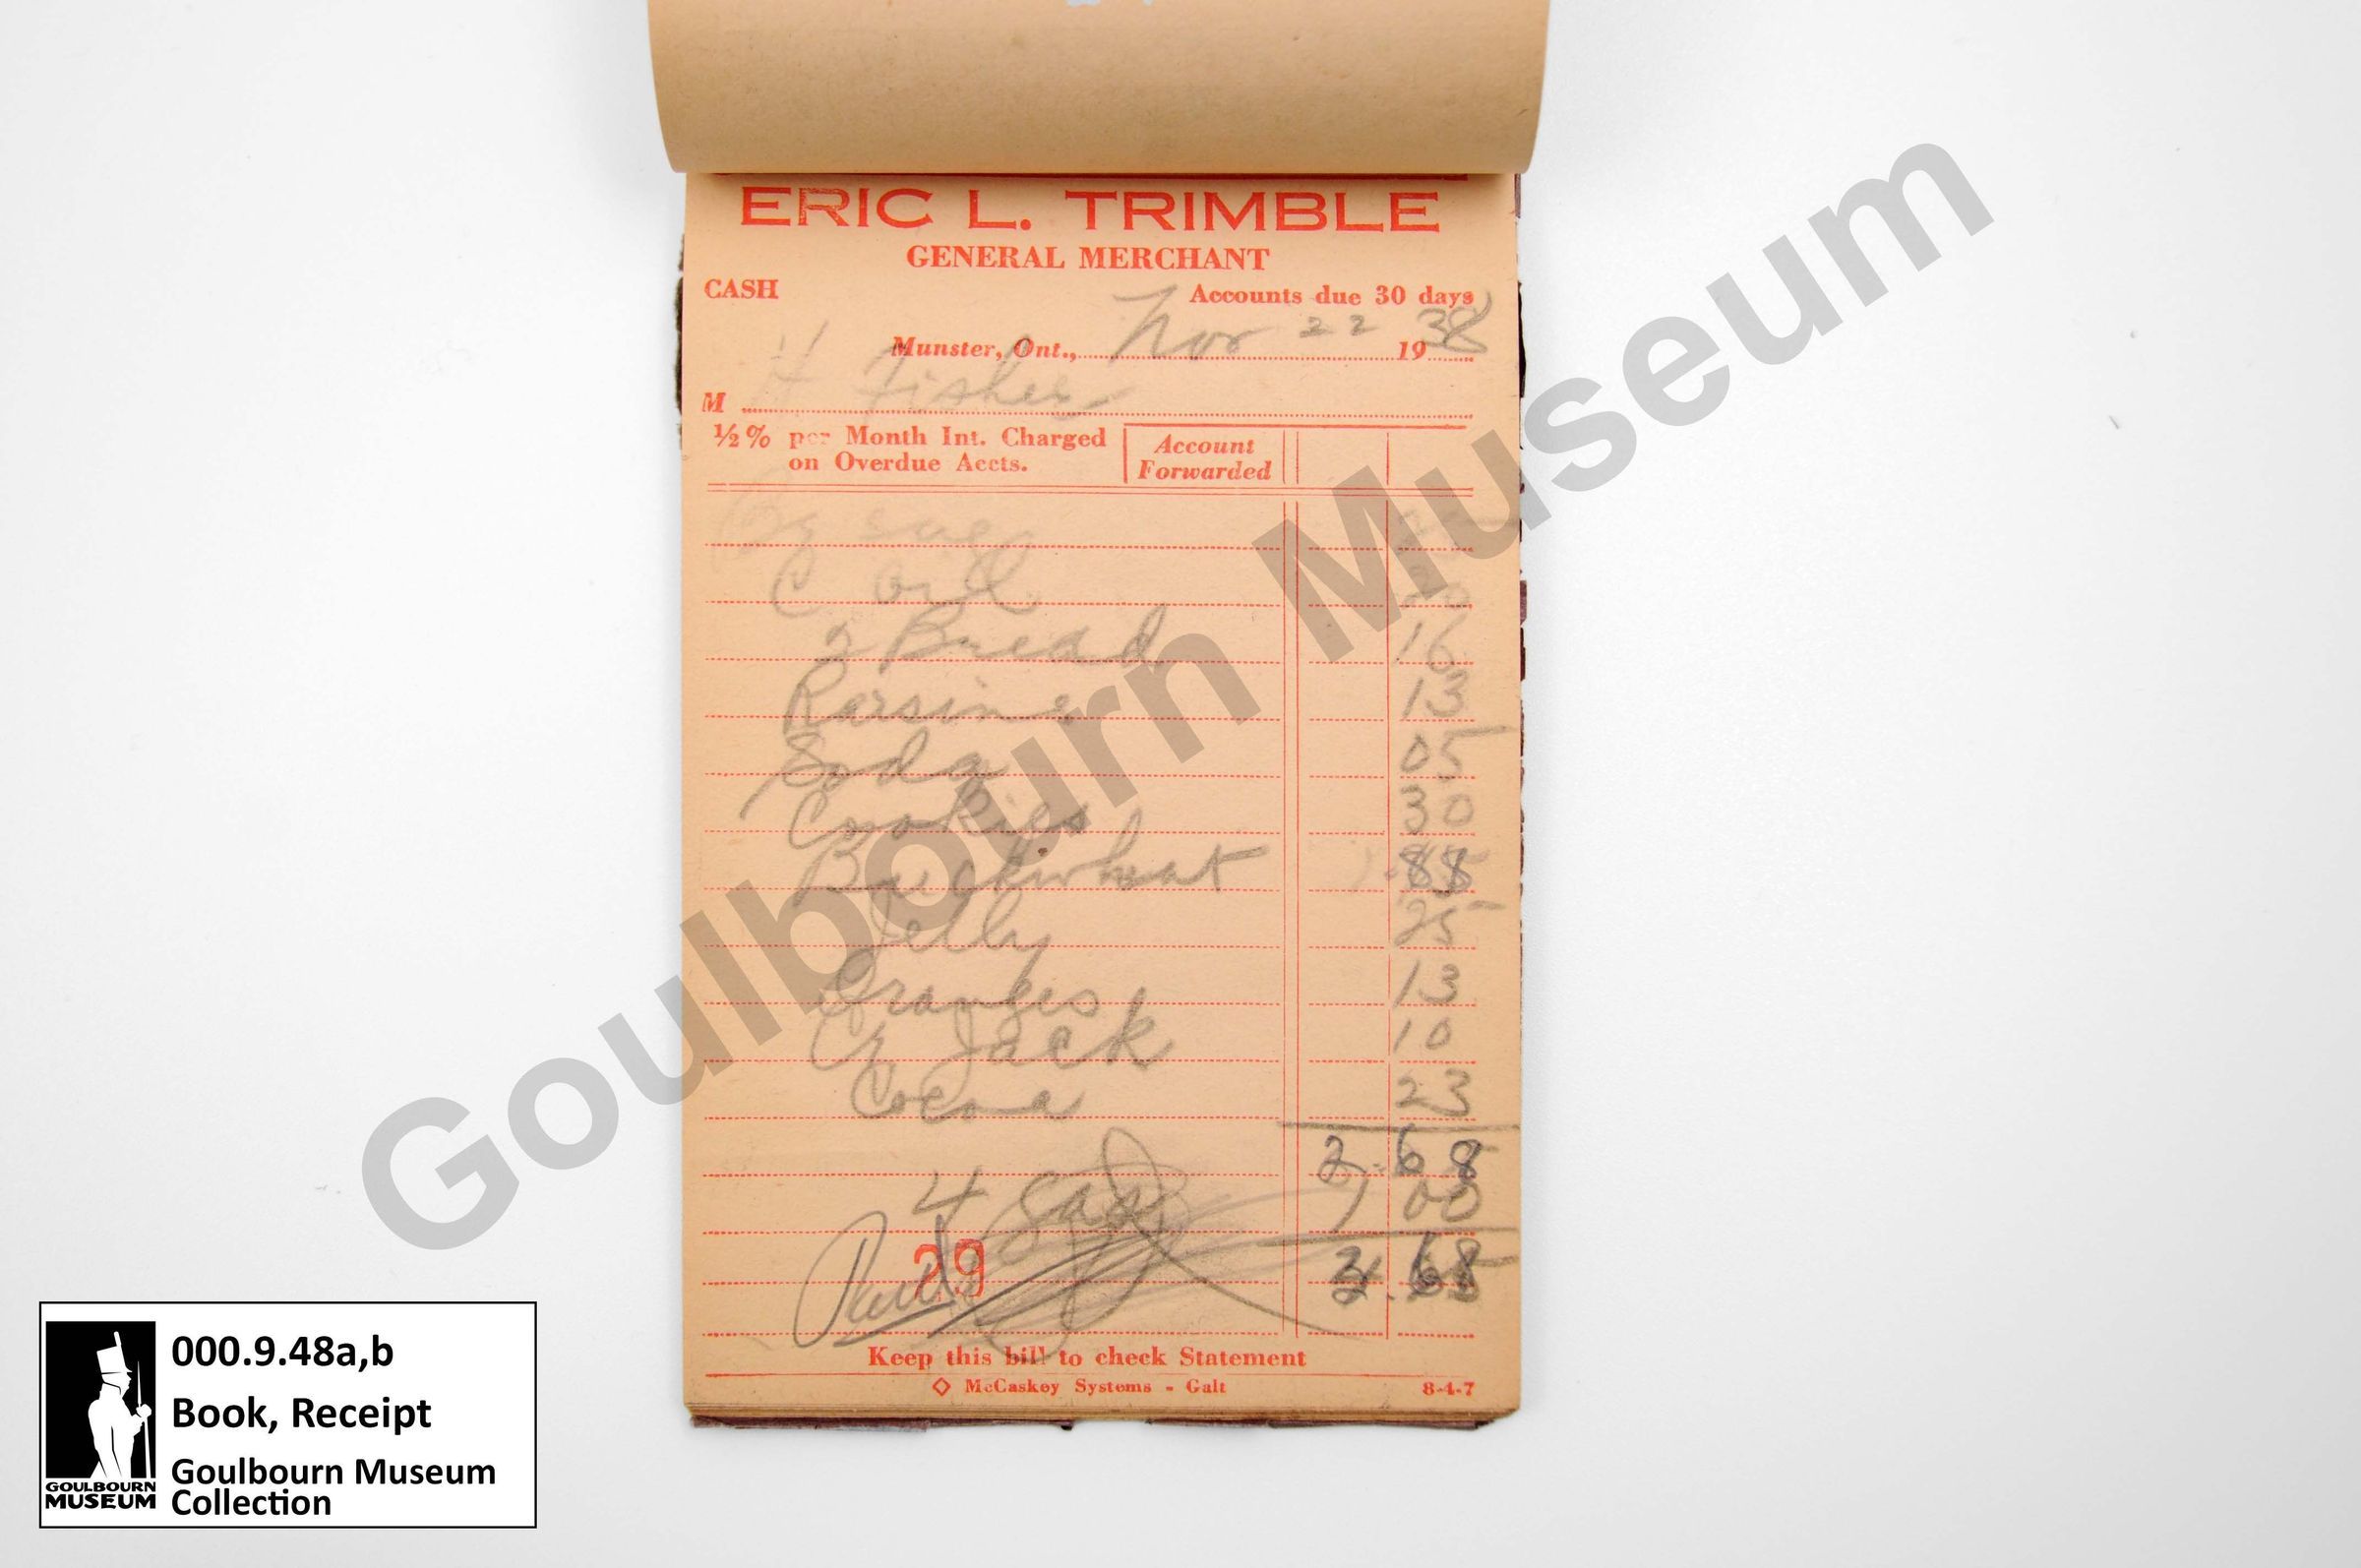 ERIC L. TRIMBLE
GENERAL MERCHANT
CASH Accounts due 30 days
Munster, Ont., Nov 22 1938
M H Fisher
½% per Month Int. Charged
on Overdue Accts.
Account
Forwarded
C oil 20
2 Bread 16
Raisins 13
Soda 05
Cookies 30
Buckwheat 88
Jelly 25
Oranges 13
Cr Jack 10
Cocoa 23
2.68
4 gas 1 00
29 3.68
Keep this bill to check Statement
McCaskey Systems - Galt 8-4-7
Goulbourn Museum
000.9.48a,b
Book, Receipt
Goulbourn Museum
Collection
GOULBOURN
MUSEUM